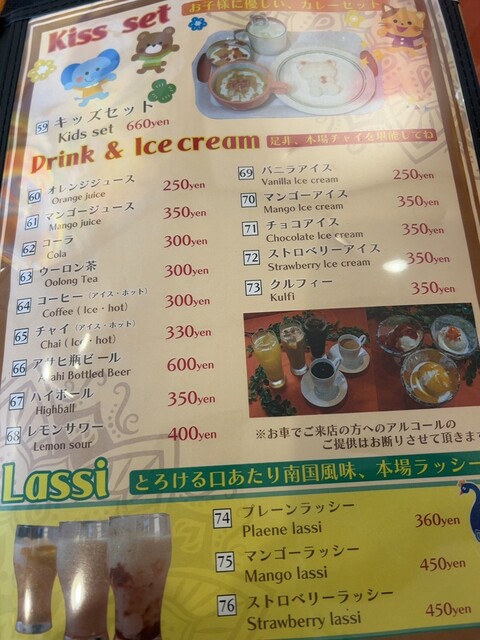 Kiss set
お子様に優しい、カレーセット
59 キッズセット
Kids set 660yen
Drink & Ice cream
是非、本場チャイを堪能してね
60 オレンジジュース 250yen
Orange juice
61 マンゴージュース 350yen
Mango juice
62 コーラ 300yen
Cola
63 ウーロン茶 300yen
Oolong Tea
64 コーヒー（アイス・ホット） 300yen
Coffee ( Ice・hot)
65 チャイ（アイス・ホット） 330yen
Chai ( Ice・hot)
66 アサヒ瓶ビール 600yen
Asahi Bottled Beer
67 ハイボール 350yen
Highball
68 レモンサワー 400yen
Lemon sour
69 バニラアイス 250yen
Vanilla Ice cream
70 マンゴーアイス 350yen
Mango Ice cream
71 チョコアイス 350yen
Chocolate Ice cream
72 ストロベリーアイス 350yen
Strawberry Ice cream
73 クルフィー 350yen
Kulfi
※お車でご来店の方へのアルコールの
ご提供はお断りさせて頂きます
Lassi
とろける口あたり南国風味、本場ラッシー
74 プレーンラッシー 360yen
Plaene lassi
75 マンゴーラッシー 450yen
Mango lassi
76 ストロベリーラッシー 450yen
Strawberry lassi